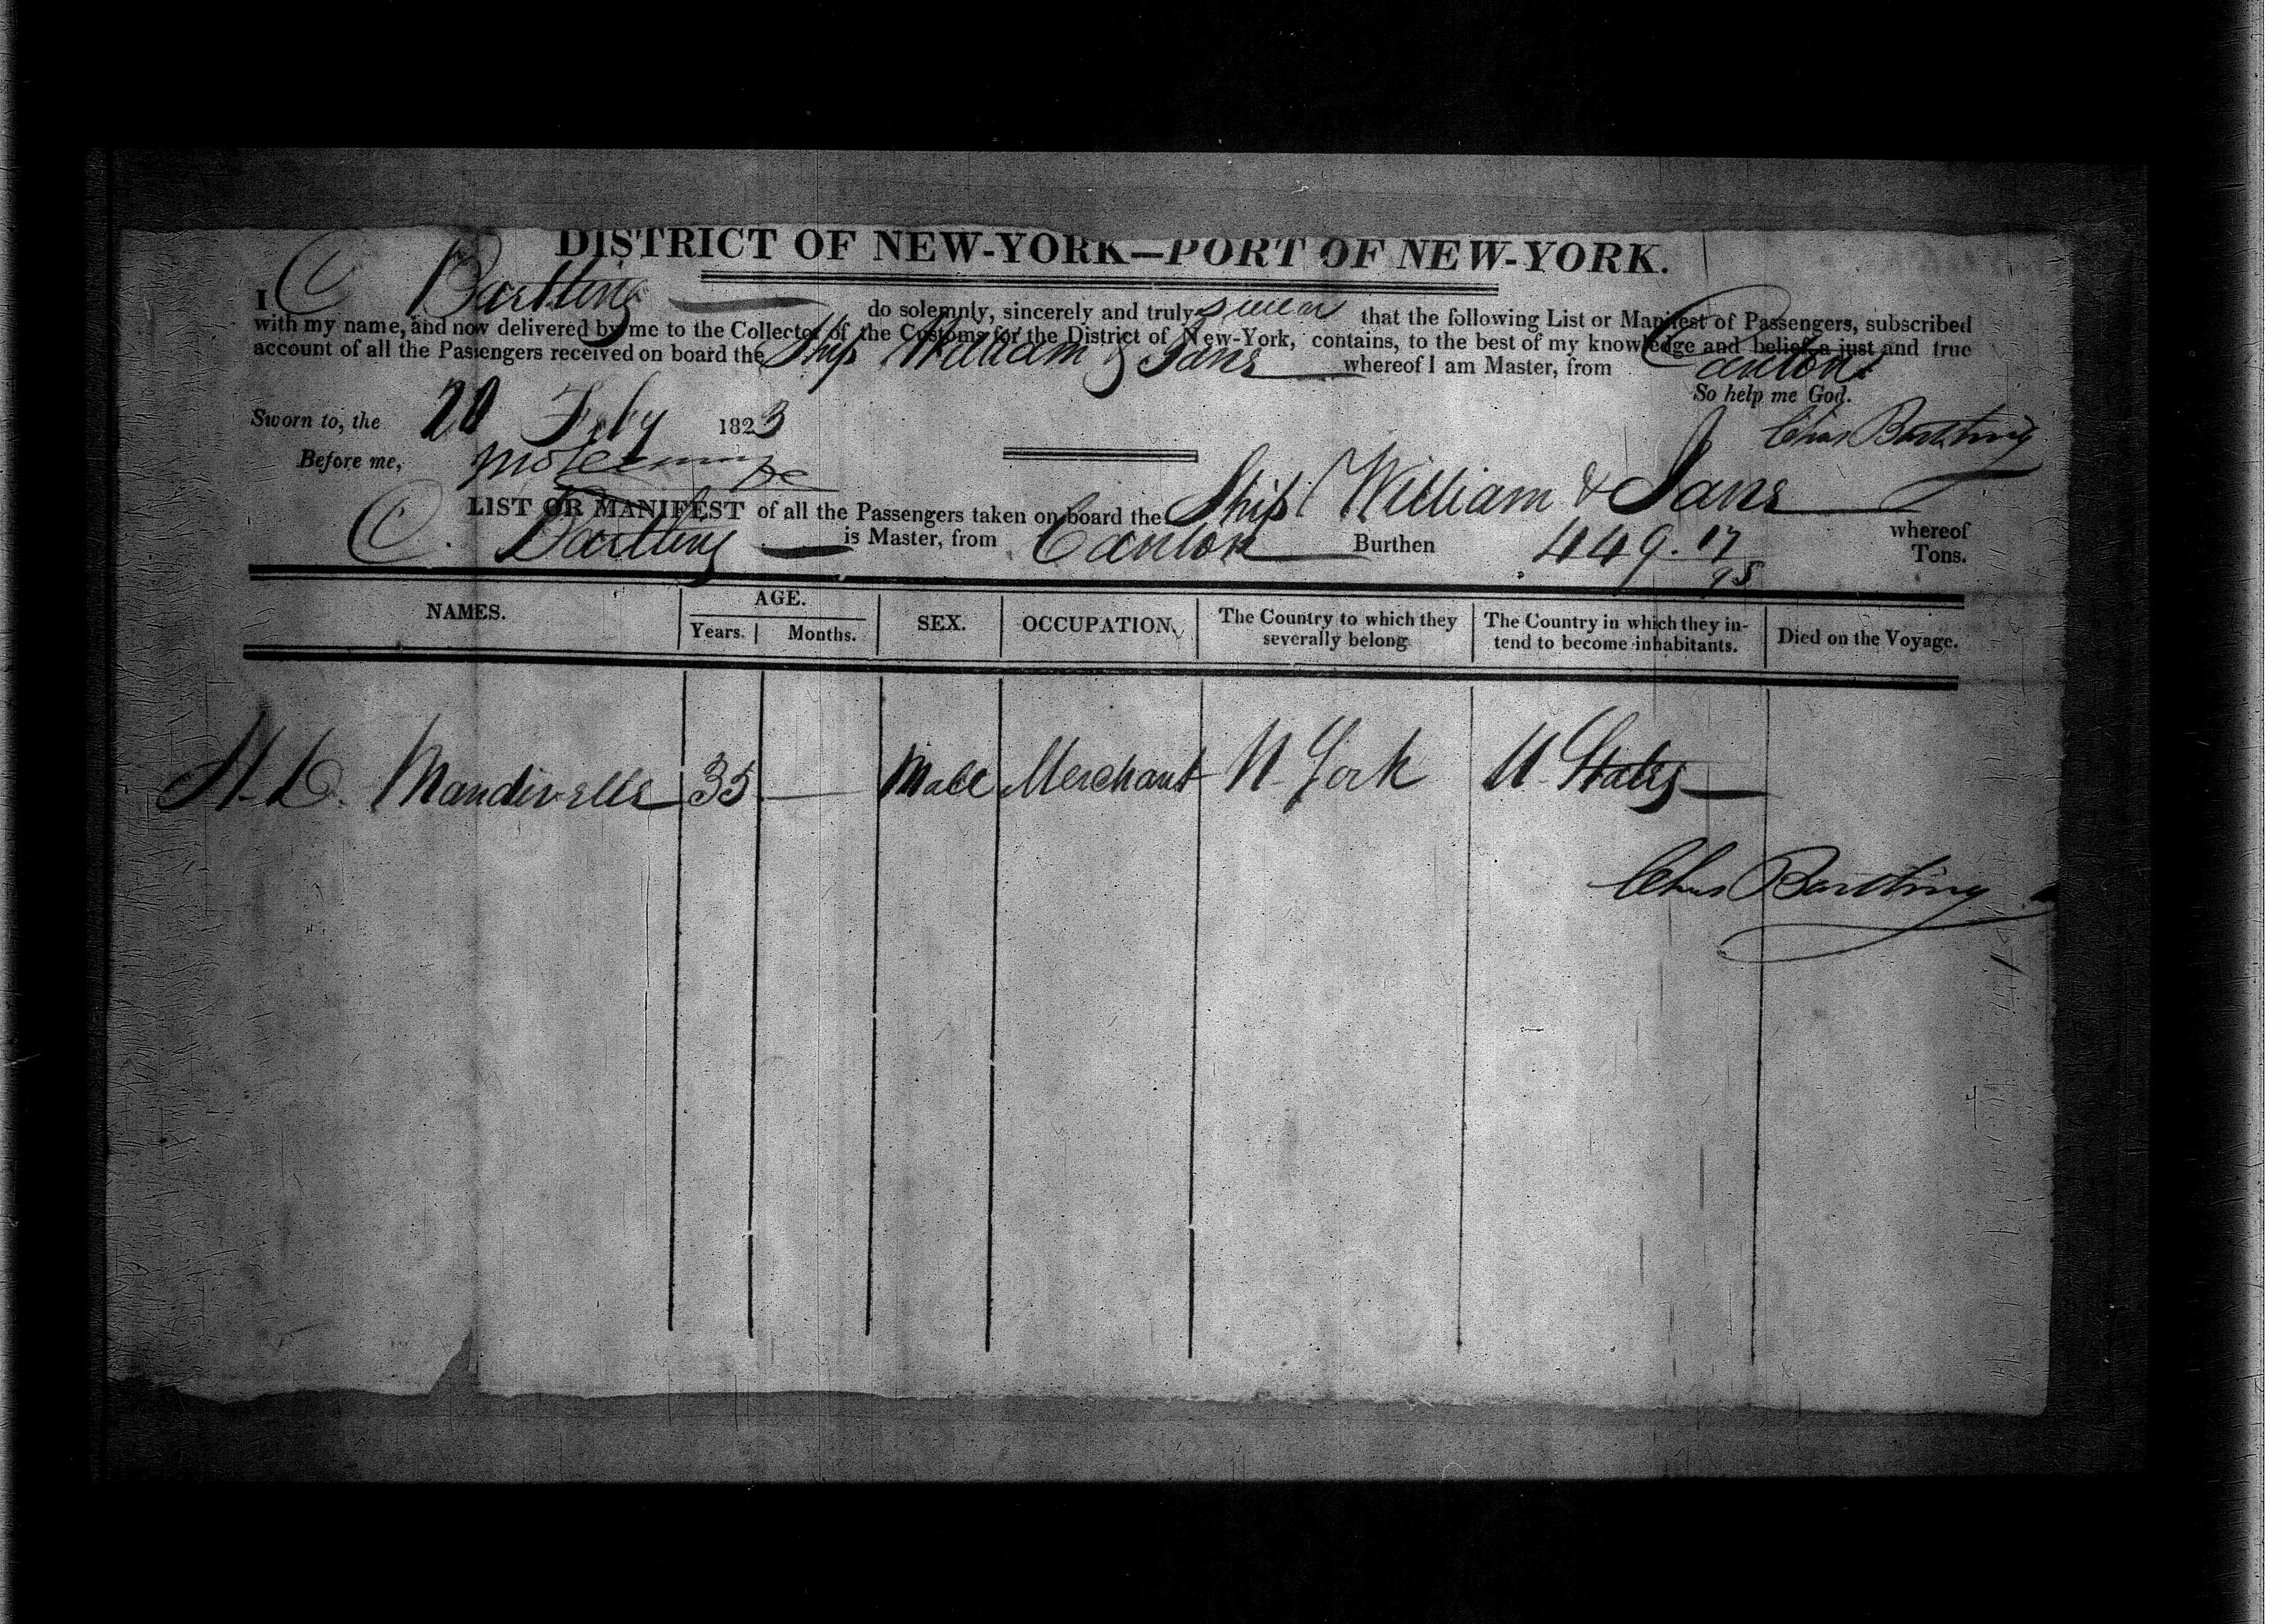 DISTRICT OF NEW-YORK—PORT OF NEW-YORK.
I C Bartling do solemnly, sincerely and truly swear that the following List or Manifest of Passengers, subscribed
with my name, and now delivered by me to the Collector of the Customs for the District of New-York, contains, to the best of my knowledge and belief a just and true
account of all the Passengers received on board the Ship William & Jane whereof I am Master, from Canton
So help me God.
Sworn to, the 20 Feby 1823
Chas Bartling
Before me,
LIST OR MANIFEST of all the Passengers taken on board the Ship William & Jane whereof
C. Bartling is Master, from Canton Burthen 449. 17/95 Tons.
NAMES. AGE. SEX. OCCUPATION. The Country to which they severally belong The Country in which they intend to become inhabitants. Died on the Voyage.
Years. Months.
H. D. Mandiville 35 — Male Merchant N. York U. States
Chas Bartling